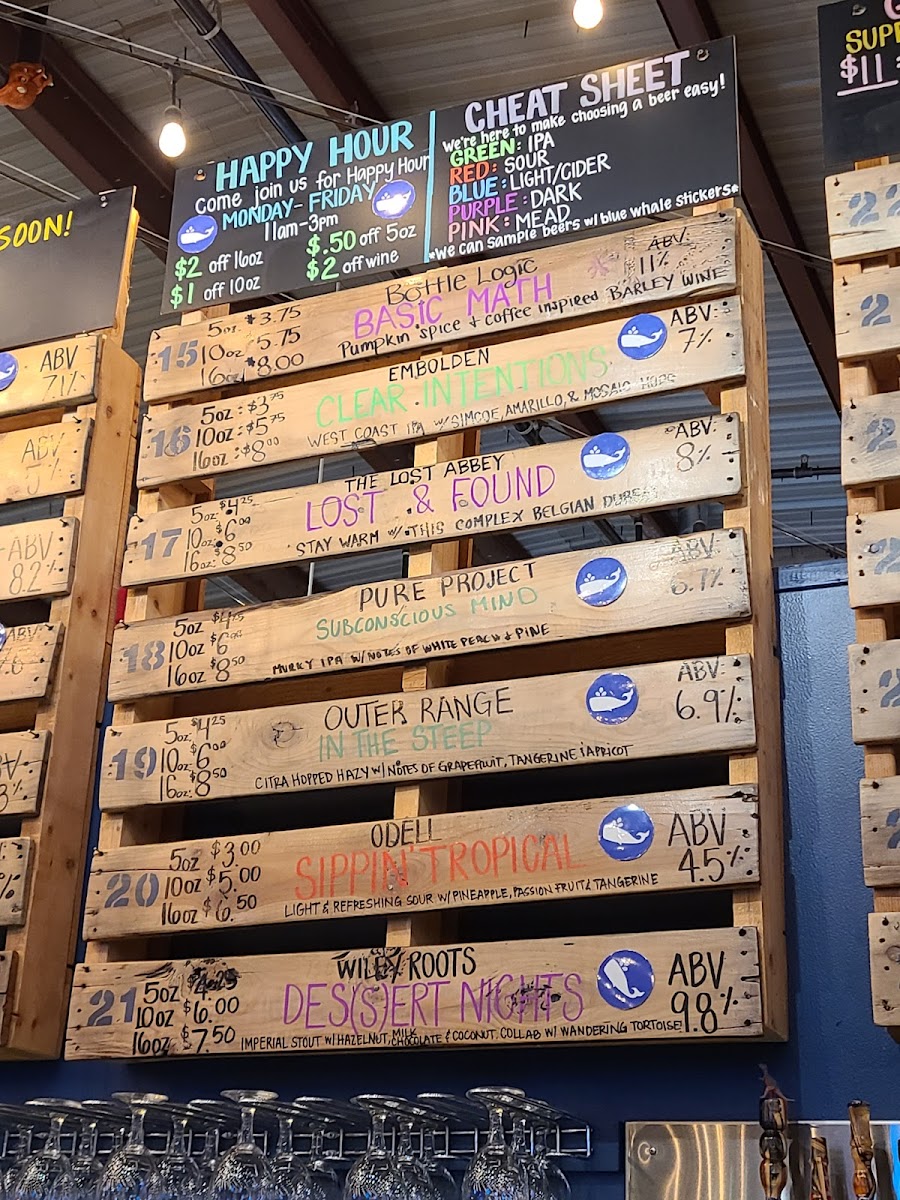 HAPPY HOUR
Come join us for Happy Hour
MONDAY-FRIDAY
11am-3pm
$2 off 16oz
$.50 off 5oz
$1 off 10oz
$2 off wine
CHEAT SHEET
We're here to make choosing a beer easy!
GREEN: IPA
RED: SOUR
BLUE: LIGHT/CIDER
PURPLE: DARK
PINK: MEAD
*We can sample beers w/ blue whale stickers*
SOON!
SUP
$11
ABV
7.1%
ABV
5%
ABV
8.2%
ABV:
15
5oz $3.75
10oz $5.75
16oz $8.00
Bottle Logic
BASIC MATH
Pumpkin spice & coffee inspired BARLEY WINE
ABV:
11%
16
5oz: $3.75
10oz: $5.75
16oz: $8.00
EMBOLDEN
CLEAR INTENTIONS
WEST COAST IPA W/SIMCOE, AMARILLO, & MOSAIC HOPS
ABV:
7%
17
5oz: $4.25
10oz: $6.00
16oz: $8.50
THE LOST ABBEY
LOST & FOUND
STAY WARM W/ THIS COMPLEX BELGIAN
ABV:
8%
18
5oz
10oz $6
16oz $8.50
PURE PROJECT
SUBCONSCIOUS MIND
MURKY IPA W/NOTES OF WHITE PEACH & PINE
ABV:
19
5oz: $4.25
10oz: $6.00
16oz: $8.50
OUTER RANGE
IN THE STEEP
CITRA HOPPED HAZY W/ NOTES OF GRAPEFRUIT, TANGERINE & APRICOT
ABV:
6.9%
20
5oz $3.00
10oz $5.00
16oz $6.50
ODELL
SIPPIN' TROPICAL
LIGHT & REFRESHING SOUR W/ PINEAPPLE, PASSION FRUIT & TANGERINE
ABV
4.5%
21
5oz $4.25
10oz $6.00
16oz $7.50
WILEY ROOTS
DES(S)ERT NIGHTS
IMPERIAL STOUT W/ HAZELNUT, MILK CHOCOLATE & COCONUT. COLLAB W/ WANDERING TORTOISE!
ABV
9.8%